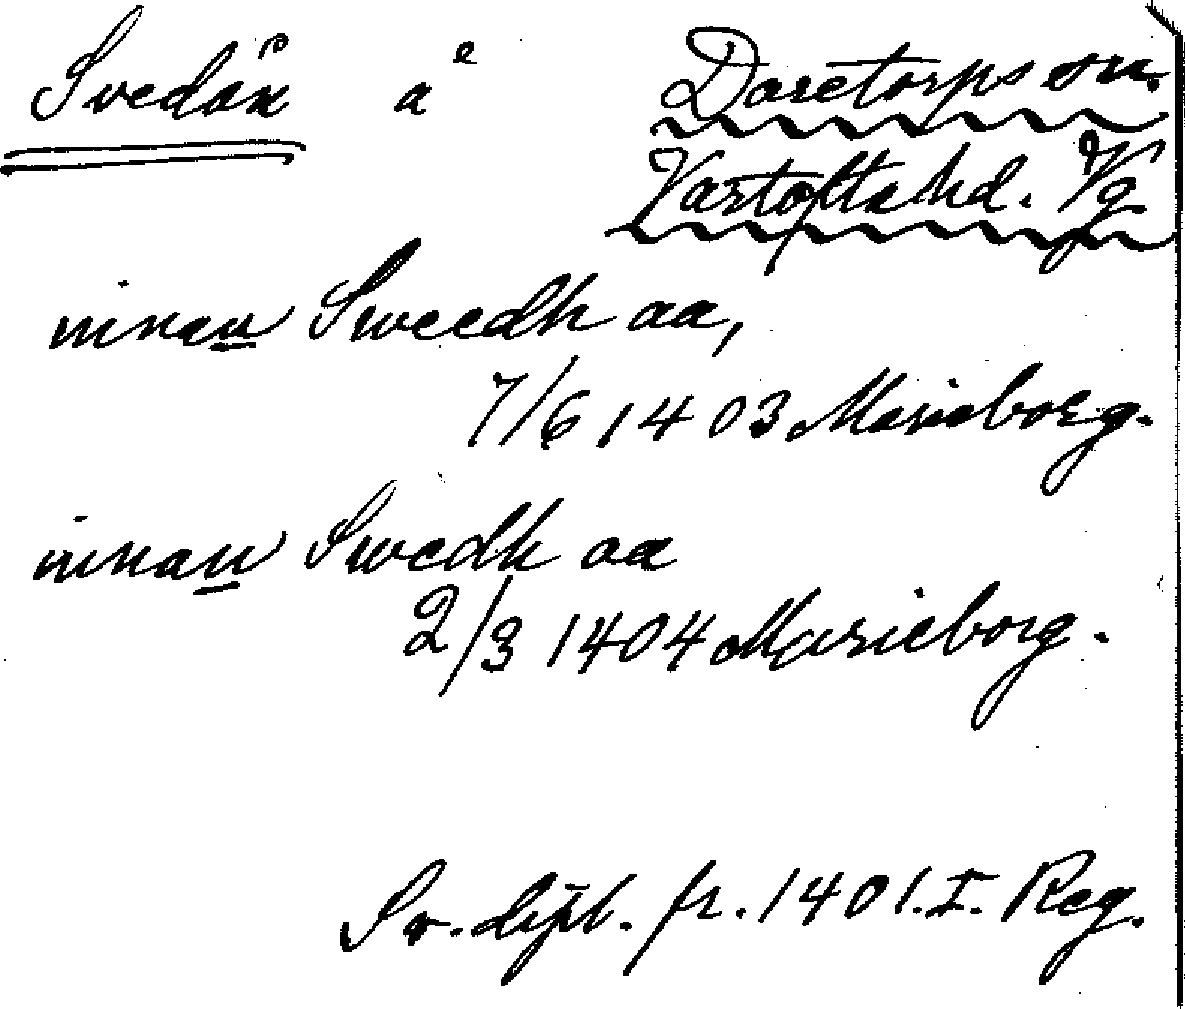 Svedån å Daretorps sn.
Vartofta hd. Vg
innan Sweedh aa,
7/6 1403 Marieborg.
innan Swedh aa
2/3 1404 Marieborg.
Sv. dipl. fr. 1401. I. Reg.